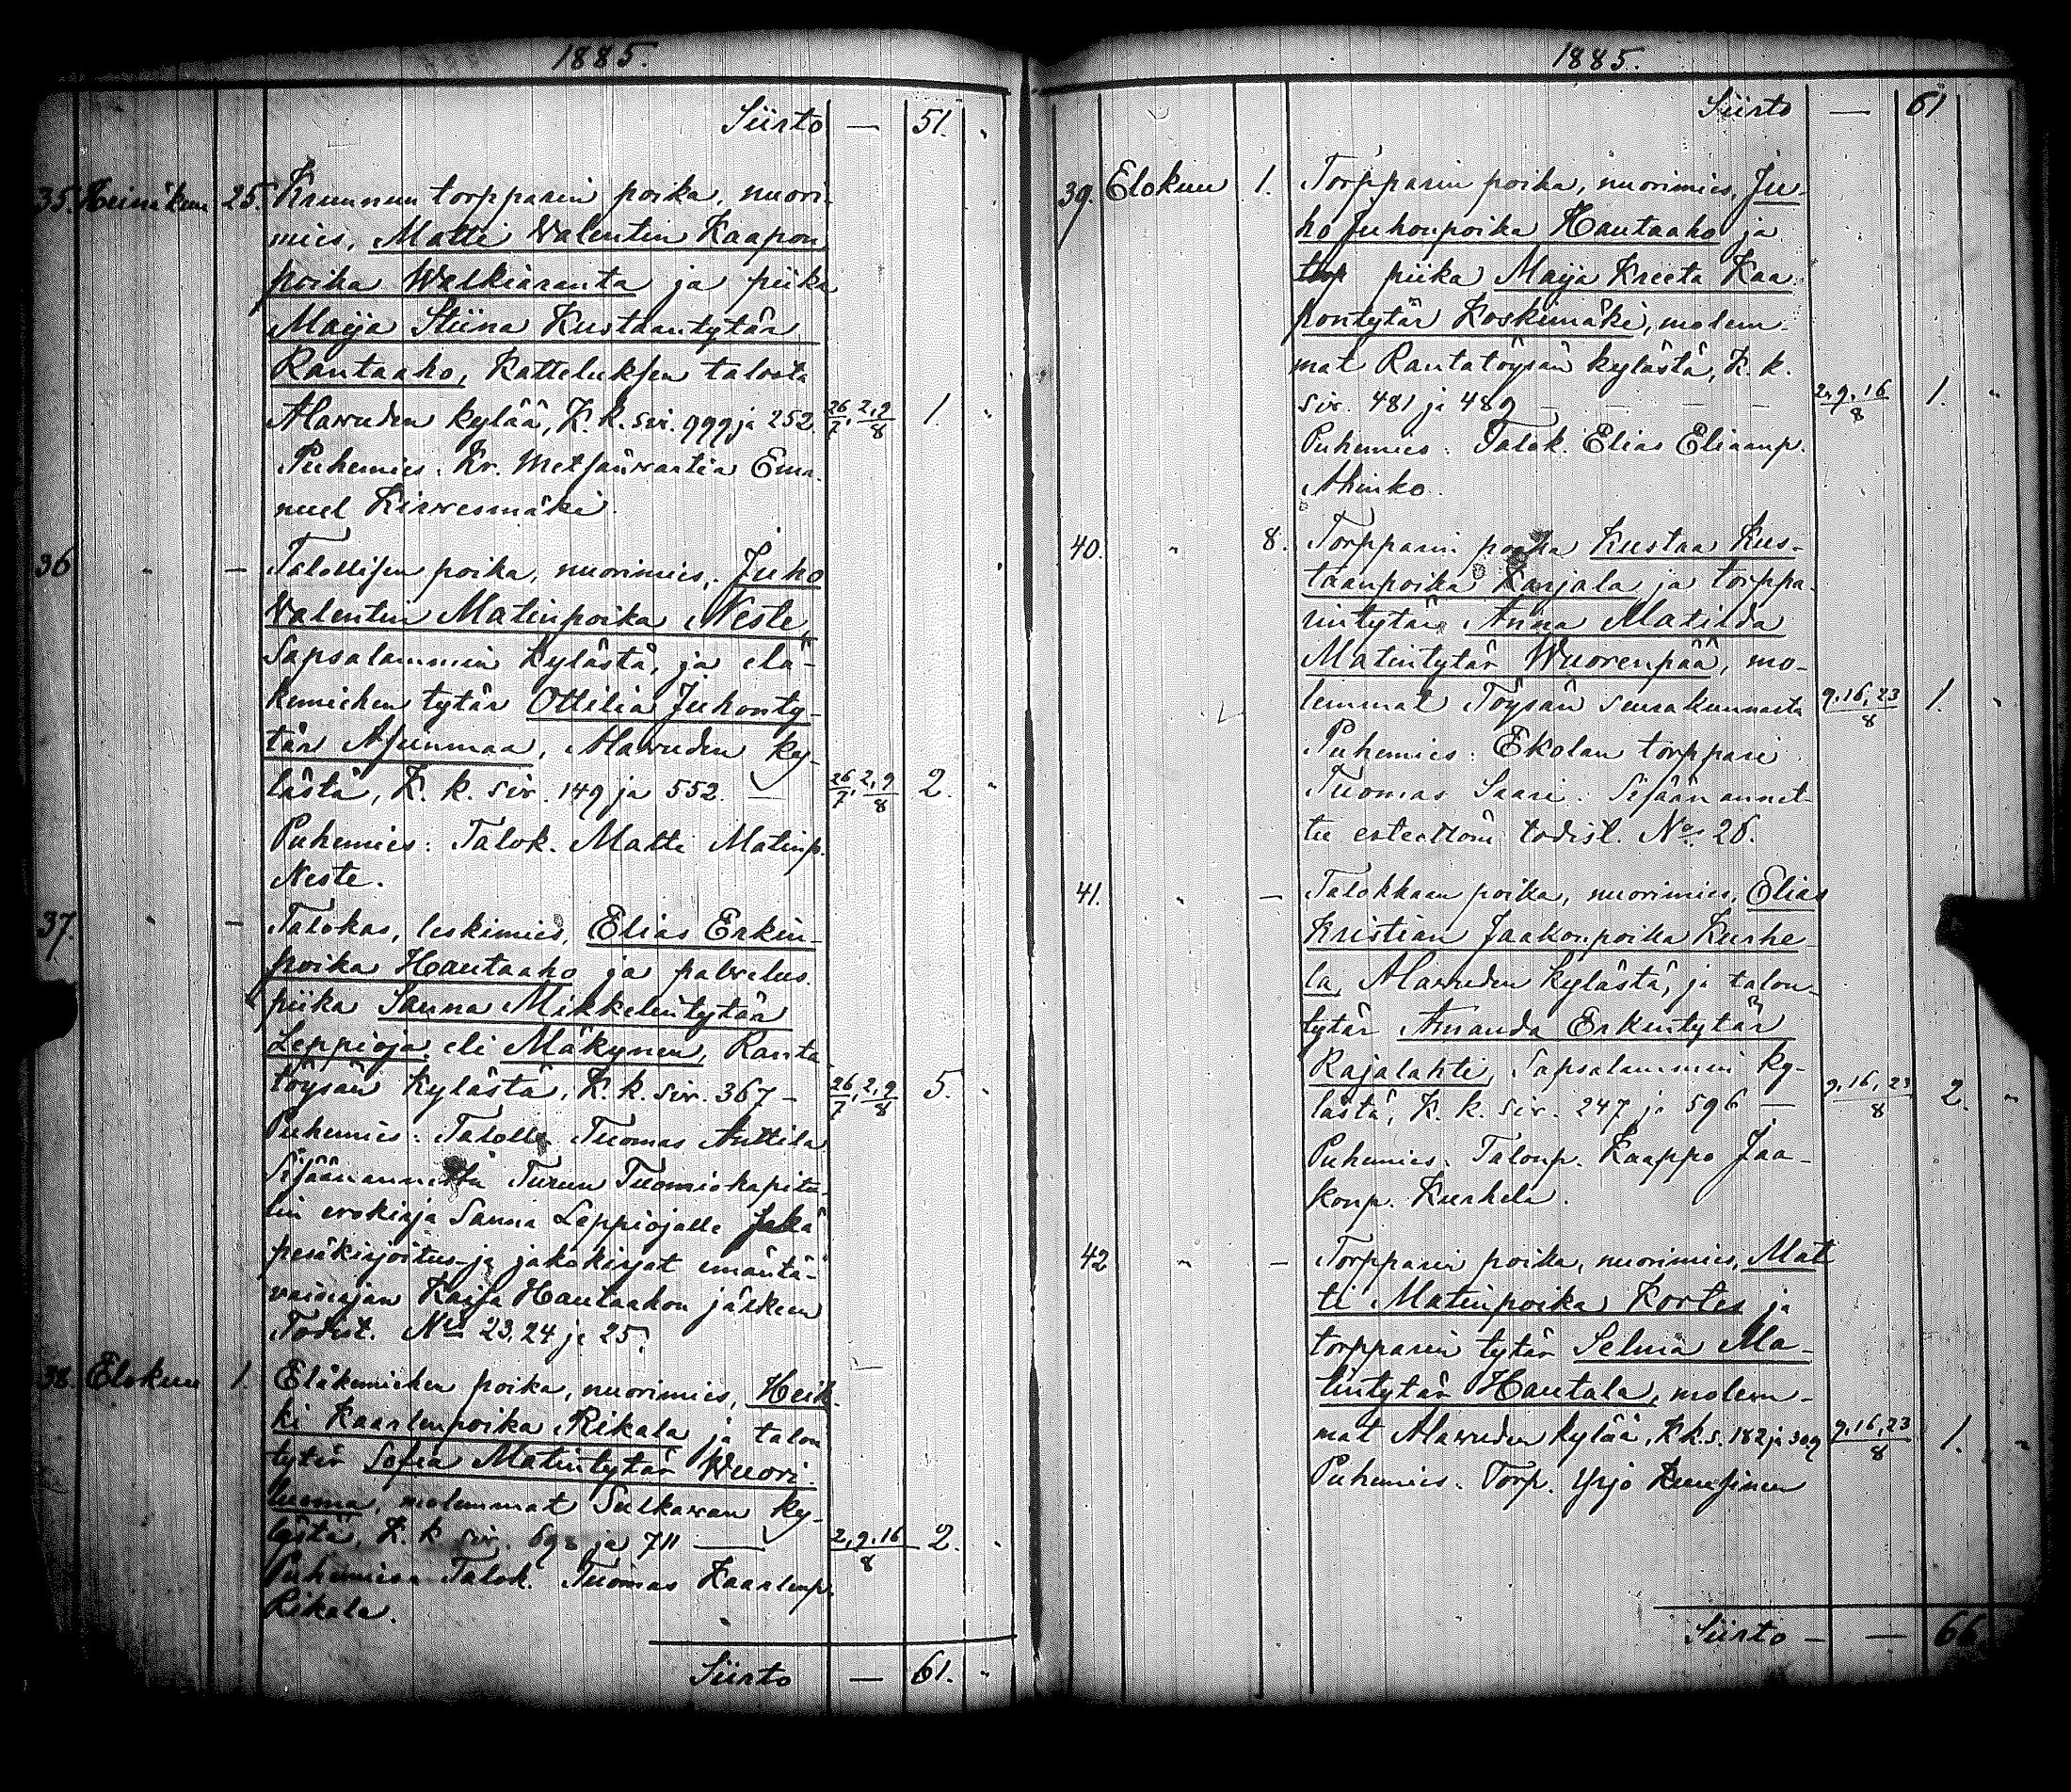 1885.
Siirto — 51.
35. Heinäkuu 25. Kruunun torpparin poika, nuori-
mies, Matti Walentin Kaapon
poika Walkiaranta ja piika
Maija Stiina Kustaantytär
Rantaaho, Katteluksen talosta
Alavuden kylää, K. k. siv. 999 ja 252. 26/7, 2,9/8 1.
Puhemies. Kr. Metsänvartia Ema-
nuel Kirvesmäki.
36 " — Talollisen poika, nuorimies, Juho
Valentin Matinpoika Neste,
Sapsalammin kylästä, ja elä-
kemiehen tytär Ottilia Juhonty-
tär Asunmaa, Alavuden ky-
lästä, K. k. siv. 149 ja 552. — 26/7, 2,9/8 2.
Puhemies: Talok. Matti Matinp.
Neste.
37. " — Talokas, leskimies, Elias Erkin-
poika Hautaaho ja palvelus-
piika Sanna Mikkelintytär
Leppioja eli Mäkynen, Ranta-
töysän kylästä, K. k. siv. 367 — 26/7, 2,9/8 5.
Puhemies: Taloll. Tuomas Anttila
Sisäänannettu Turun Tuomiokapitu-
lin erokirja Sanna Leppiojalle
pesäkirjoitus- ja jakokirjat emäntä-
vainajan Kaisa Hautaahon jälkeen
Todist. No 23, 24 ja 25.
38. Elokuu 1. Eläkemiehen poika, nuorimies, Heik-
ki Kaarlenpoika Rikala ja talon
tytär Sofia Matintytär Wuori-
luoma, molemmat Sulkavan ky-
lästä, K. k. siv. 698 ja 711 — 2,9,16/8 2.
Puhemies Talok. Tuomas Kaarlenp.
Rikala.
Siirto — 61.
1885.
Siirto — 61
39. Elokuu 1. Torpparin poika, nuorimies, Ju-
ho Juhonpoika Hautaaho ja
torp piika Maija Kreeta Kaa
pontytär Koskimäki, molem-
mat Rantatöysän kylästä, K. k.
siv. 481 ja 489 — — — 2,9,16/8 1.
Puhemies: Talok. Elias Eliaanp.
Ahinko.
40. " 8. Torpparin poika Kustaa Kus-
taanpoika Karjala ja torppa-
rintytär Anna Matilda
Matintytär Wuorenpää, mo-
lemmat Töysän seurakunnasta 9,16,23/8 1.
Puhemies: Ekolan torppari
Tuomas Saari. Sisäänannet-
tu esteettöm. todist. No 26.
41. " — Talokkaan poika, nuorimies, Elias
Kristian Jaakonpoika Kurhe-
la, Alavuden kylästä, ja talon-
tytär Amanda Erkintytär
Rajalahti, Sapsalammin ky-
lästä, K. k. siv. 247 ja 596 — 9,16,23/8 2.
Puhemies. Talonp. Kaappo Jaa-
konp. Kurhela.
42 " — Torpparin poika, nuorimies, Mat
ti Matinpoika Kortes ja
torpparin tytär Selma Ma-
tintytär Hautala, molem-
mat Alavuden kylää, K. k. s. 182 ja 309 9,16,23/8 1.
Puhemies. Torp. Yrjö
Siirto — — 66.